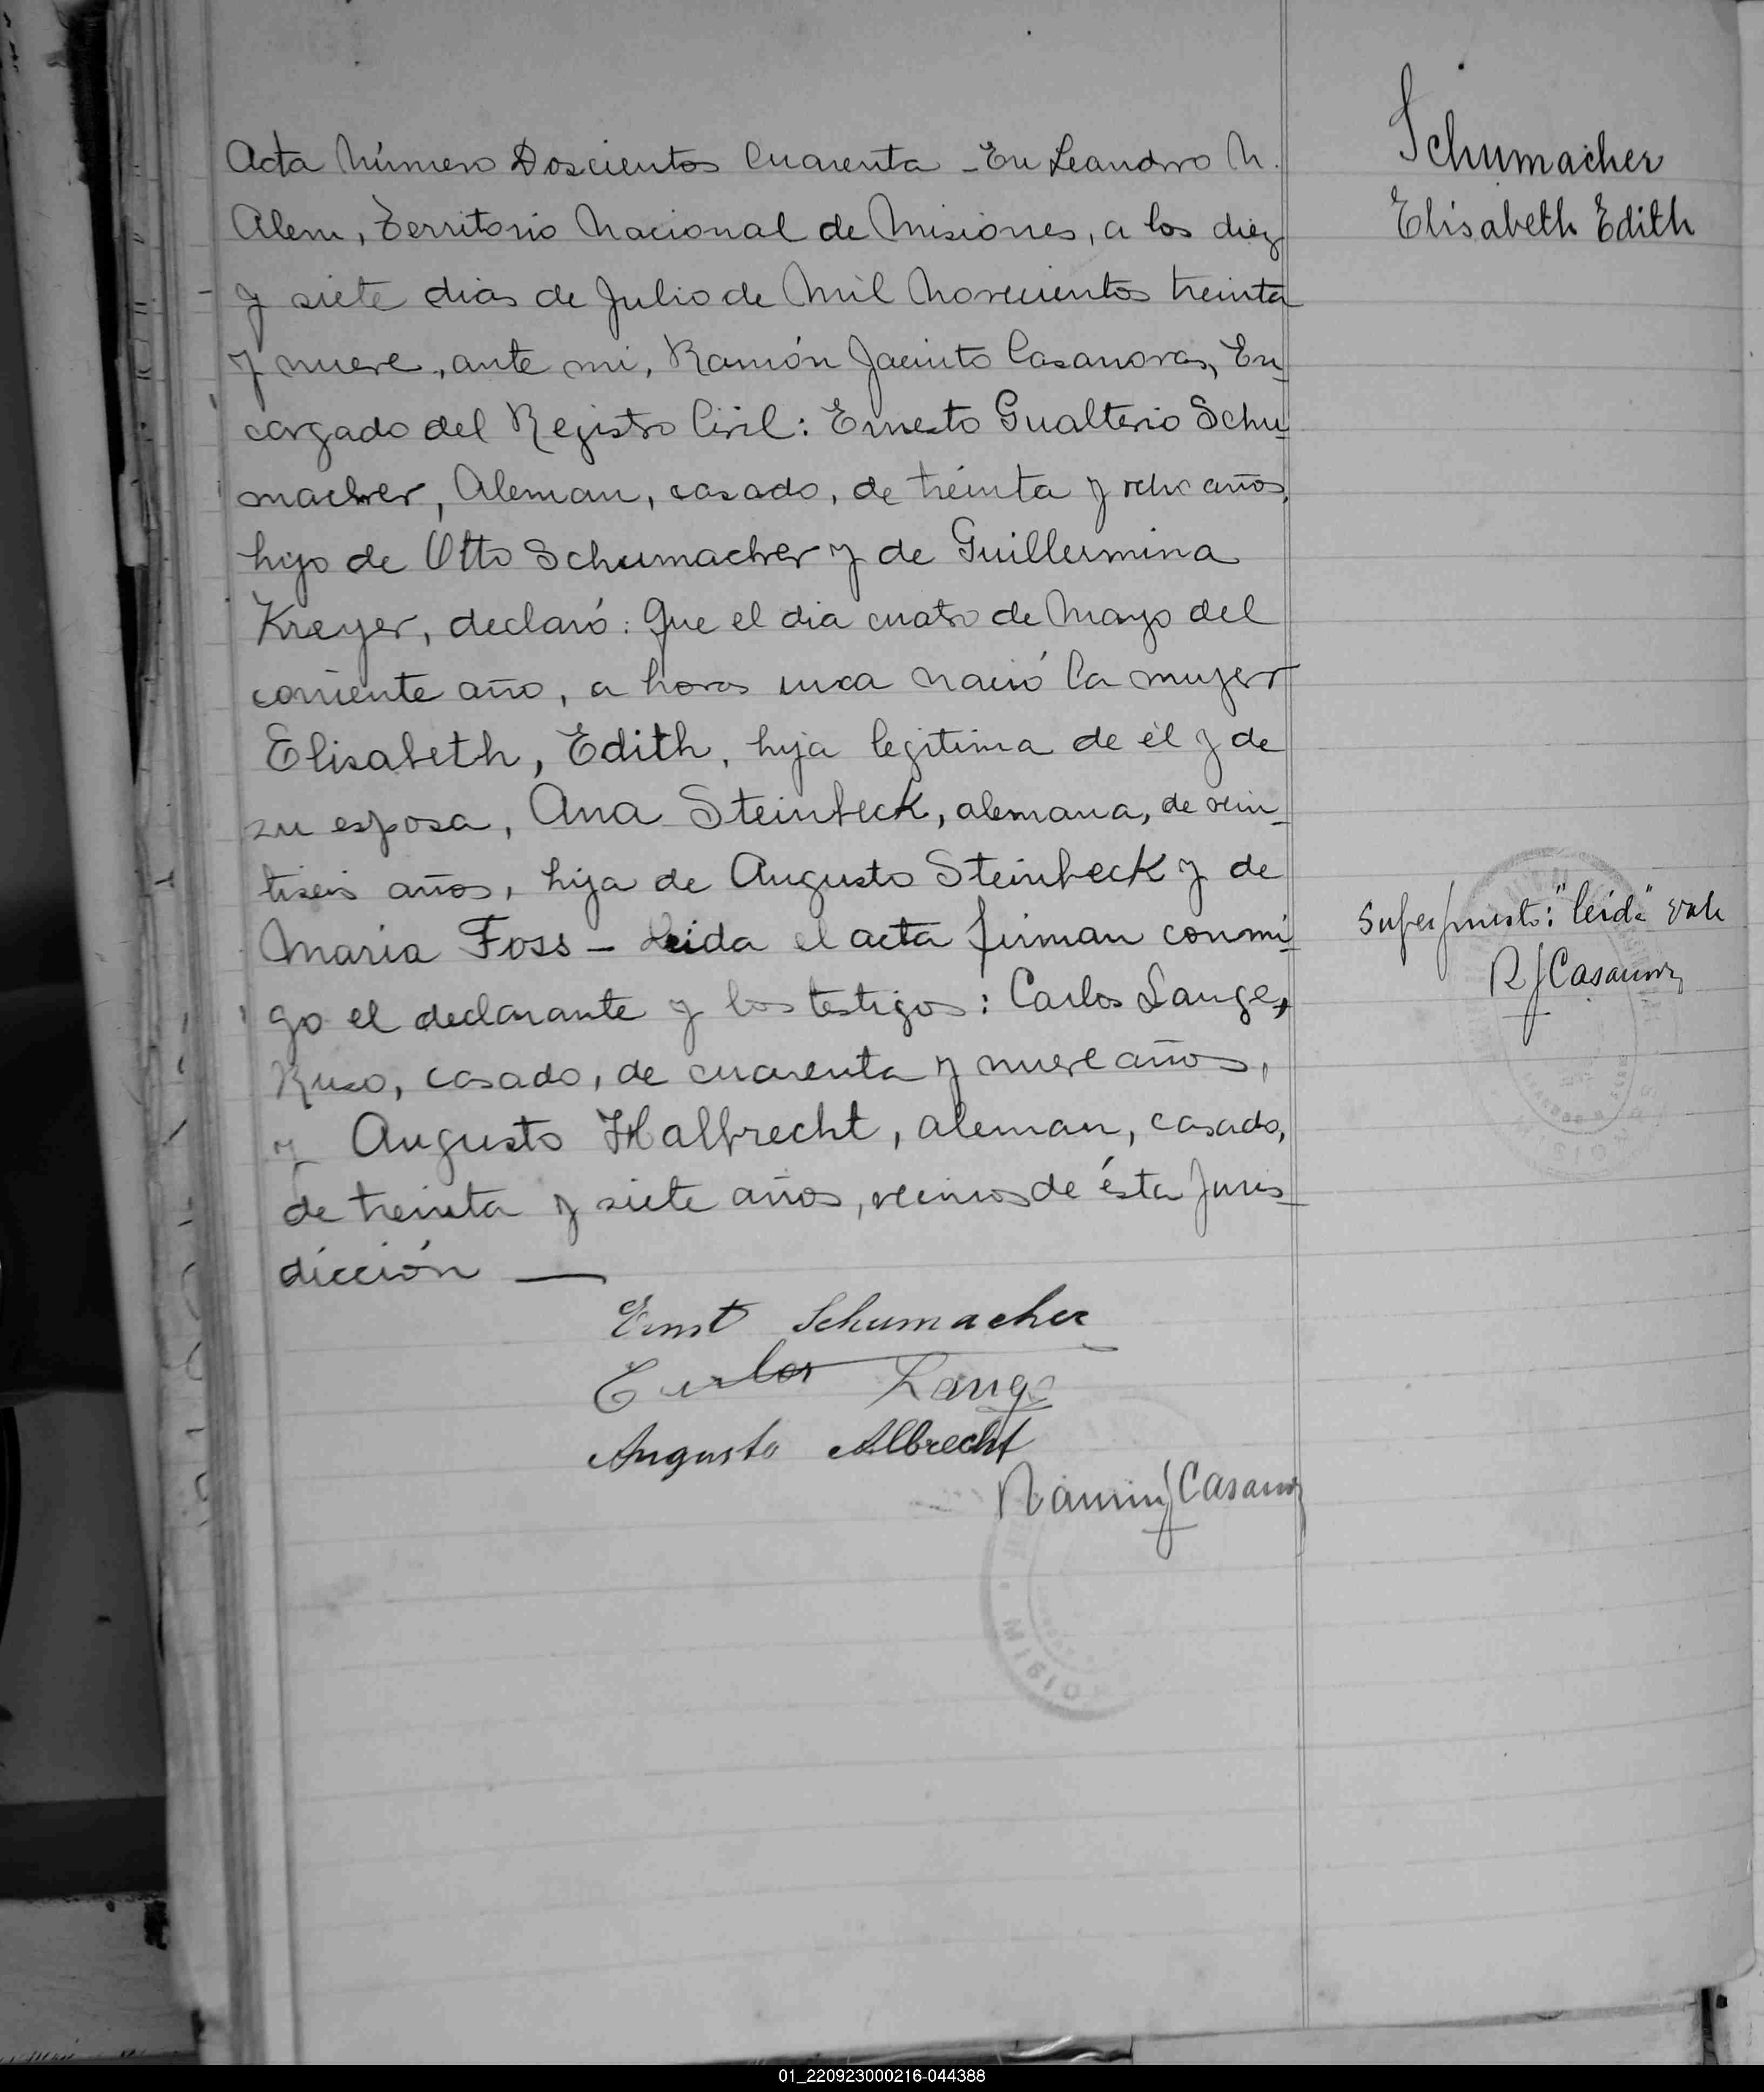 Acta Número Doscientos Cuarenta - En Leandro N.
Alem, Territorio Nacional de Misiones, a los diez
y siete dias de Julio de Mil Novecientos treinta
y nueve, ante mi, Ramón Jacinto Casanovas, En-
cargado del Registro Civil: Ernesto Gualterio Schu-
macher, Aleman, casado, de treinta y ocho años,
hijo de Otto Schumacher y de Guillermina
Kreyer, declaró: Que el dia cuatro de Mayo del
corriente año, a horas una nació la mujer
Elisabeth, Edith, hija legitima de él y de
su esposa, Ana Steinbeck, alemana, de vein-
tiseis años, hija de Augusto Steinbeck y de
Maria Foss - Leida el acta firman conmi-
go el declarante y los testigos: Carlos Lange,
Ruso, casado, de cuarenta y nueve años,
y Augusto Halbrecht, aleman, casado,
de treinta y siete años, vecinos de ésta Juris-
dicción —
Ernst Schumacher
Carlos Lange
Augusto Albrecht
Ramón J Casanovas
Schumacher
Elisabeth Edith
Superpuesto: "leida" vale
R J Casanovas
MISIO
01_220923000216-044388